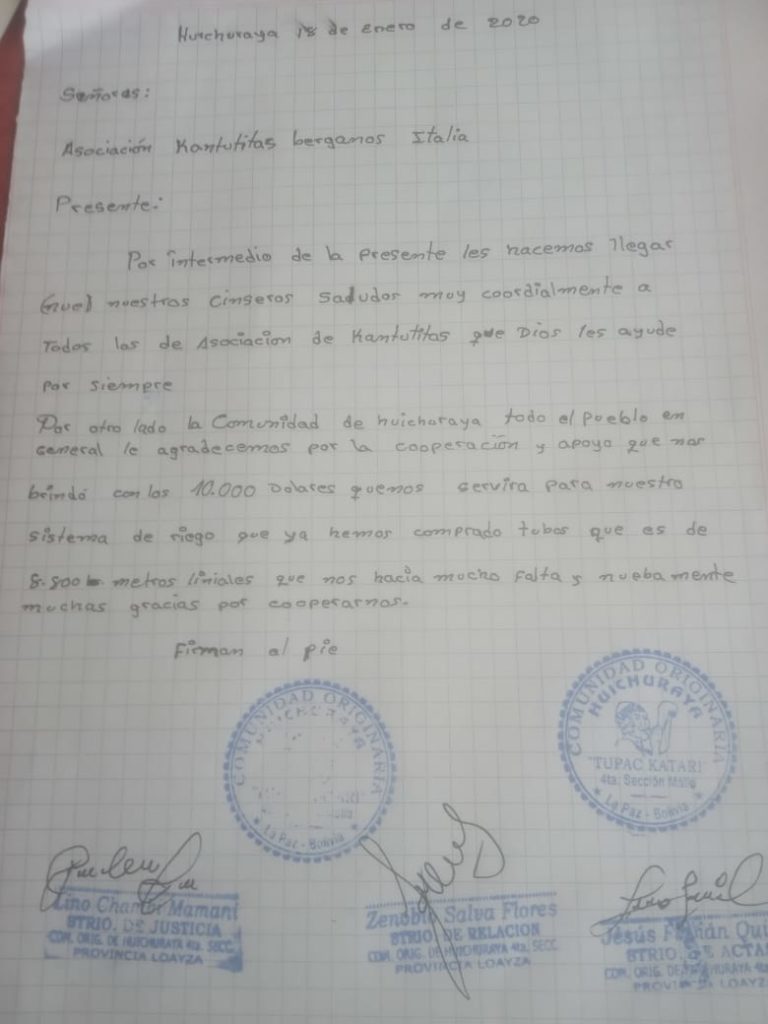 Huichuraya 18 de enero de 2020
Señoras:
Asociación Kantutitas berganos Italia
Presente:
Por intermedio de la presente les hacemos llegar
(nue) nuestros cinseros saludos muy coordialmente a
Todos las de Asociacion de Kantutitas que Dios les ayude
por siempre
Por otro lado la Comunidad de huichuraya todo el pueblo en
general le agradecemos por la cooperación y apoyo que nos
brindó con los 10.000 Dolares quemos servira para nuestro
sistema de riego que ya hemos comprado tubos que es de
8.800 metros liniales que nos hacia mucho falta y nuebamente
muchas gracias por cooperarnos.
Firman al pie
COMUNIDAD ORIGINARIA
La Paz - Bolivia
COMUNIDAD ORIGINARIA
HUICHURAYA
"TUPAC KATARI"
4ta. Sección
La Paz - Bolivia
Lino Mamani
STRIO. DE JUSTICIA
COM. ORIG. DE HUICHURAYA 4ta. SECC.
PROVINCIA LOAYZA
Zenobio Salva Flores
STRIO. DE RELACION
COM. ORIG. DE HUICHURAYA 4ta. SECC.
PROVINCIA LOAYZA
Jesús Qui
STRIO. DE ACTA
COM. ORIG. DE HUICHURAYA 4ta
PROVINCIA LOAYZ